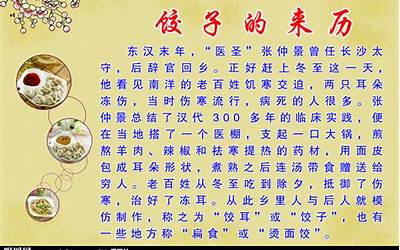 饺子的来历
东汉末年，“医圣”张仲景曾任长沙太
守，后辞官回乡。正好赶上冬至这一天，
他看见南洋的老百姓饥寒交迫，两只耳朵
冻伤，当时伤寒流行，病死的人很多。张
仲景总结了汉代 300 多年的临床实践，便
在当地搭了一个医棚，支起一口大锅，煎
熬羊肉、辣椒和祛寒提热的药材，用面皮
包成耳朵形状，煮熟之后连汤带食赠送给
穷人。老百姓从冬至吃到除夕，抵御了伤
寒，治好了冻耳。从此乡里人与后人就模
仿制作，称之为“饺耳”或“饺子”，也有
一些地方称“扁食”或“烫面饺”。